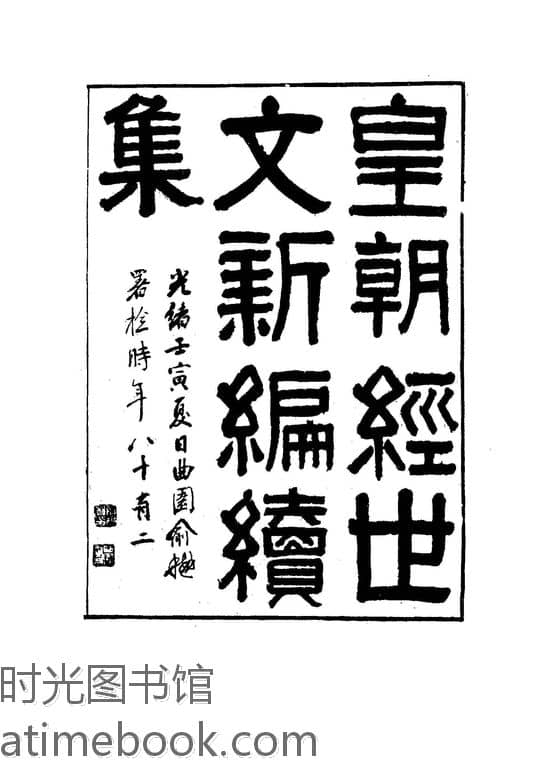 皇朝經世
文新編續
集
光緒壬寅夏日曲園俞樾
署檢時年八十有二
时光图书馆
atimebook.com